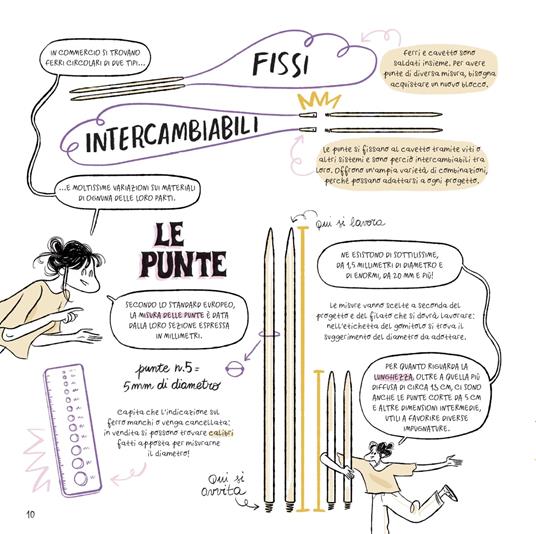 IN COMMERCIO SI TROVANO
FERRI CIRCOLARI DI DUE TIPI...
FISSI
Ferri e cavetto sono
saldati insieme. Per avere
punte di diversa misura, bisogna
acquistare un nuovo blocco.
INTERCAMBIABILI
Le punte si fissano al cavetto tramite viti o
altri sistemi e sono perciò intercambiabili tra
loro. Offrono un'ampia varietà di combinazioni,
perché possano adattarsi a ogni progetto.
...E MOLTISSIME VARIAZIONI SUI MATERIALI
DI OGNUNA DELLE LORO PARTI.
LE
PUNTE
SECONDO LO STANDARD EUROPEO,
LA MISURA DELLE PUNTE È DATA
DALLA LORO SEZIONE ESPRESSA
IN MILLIMETRI.
punte n.5 =
5 mm di diametro
Capita che l'indicazione sul
ferro manchi o venga cancellata:
in vendita si possono trovare calibri
fatti apposta per misurarne
il diametro!
Qui si lavora
Qui si
avvita
NE ESISTONO DI SOTTILISSIME,
DA 1,5 MILLIMETRI DI DIAMETRO E
DI ENORMI, DA 20 MM E PIÙ!
Le misure vanno scelte a seconda del
progetto e del filato che si dovrà lavorare:
nell'etichetta del gomitolo si trova il
suggerimento del diametro da adottare.
PER QUANTO RIGUARDA LA
LUNGHEZZA, OLTRE A QUELLA PIÙ
DIFFUSA DI CIRCA 13 CM, CI SONO
ANCHE LE PUNTE CORTE DA 5 CM
E ALTRE DIMENSIONI INTERMEDIE,
UTILI A FAVORIRE DIVERSE
IMPUGNATURE.
10